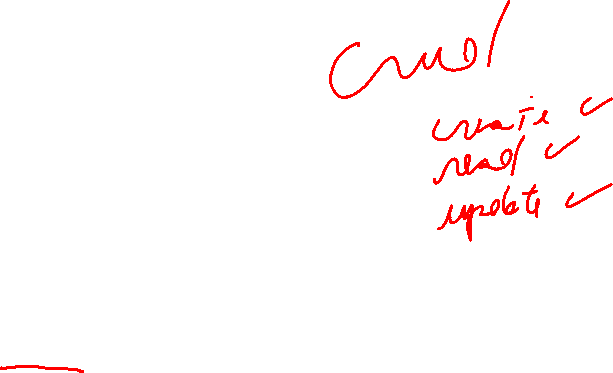 Crud
create ✓
read ✓
update ✓